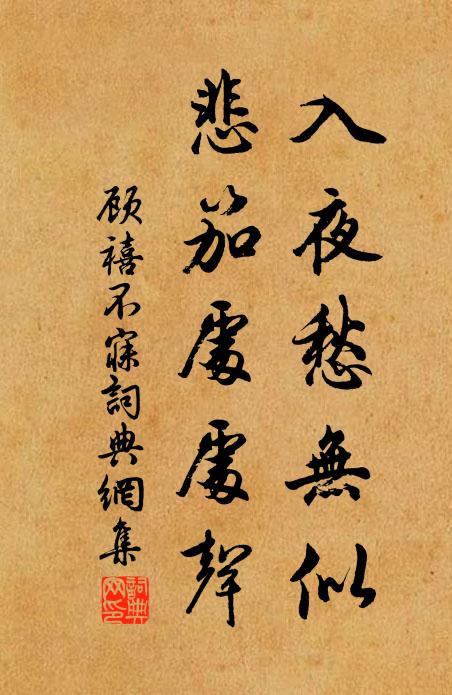 入夜愁無似
悲笳處處聲
顾禧不寐詞典網集
詞典网印